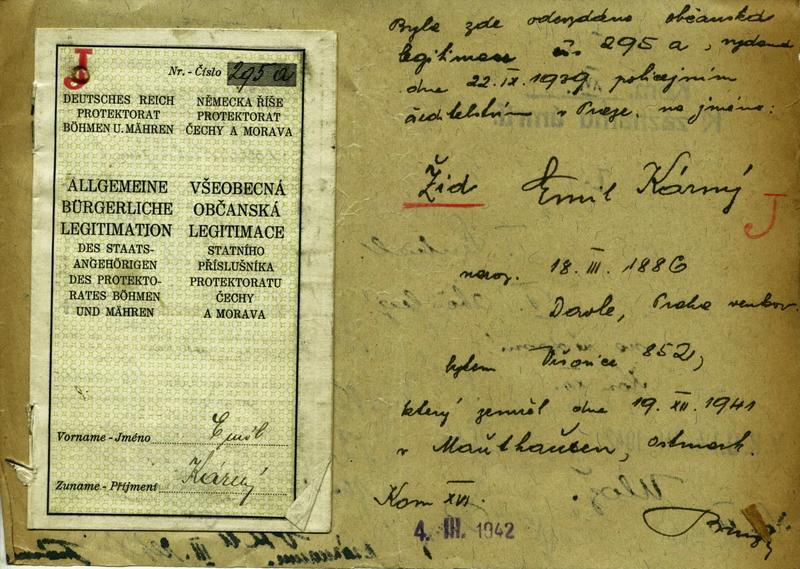 J
Nr. - Číslo 295 a
DEUTSCHES REICH
PROTEKTORAT
BÖHMEN U. MÄHREN
NĚMECKA ŘÍŠE
PROTEKTORAT
ČECHY A MORAVA
ALLGEMEINE
BÜRGERLICHE
LEGITIMATION
DES STAATS-
ANGEHÖRIGEN
DES PROTEKTO-
RATES BÖHMEN
UND MÄHREN
VŠEOBECNÁ
OBČANSKÁ
LEGITIMACE
STATNÍHO
PŘÍSLUŠNÍKA
PROTEKTORATU
ČECHY
A MORAVA
Vorname - Jméno Emil
Zuname - Příjmení Kárný
Byla zde odevzdána občanská
legitimace čís 295 a, vydaná
dne 22.IX.1939 policejním
ředitelstvím v Praze, na jméno:
Žid Emil Kárný
J
naroz. 18. III. 1886
Davle, Praha venkov
bytem 852,
který zemřel dne 19. XII. 1941
v Mauthausen, Ostmark.
Kom XVI.
4. III. 1942